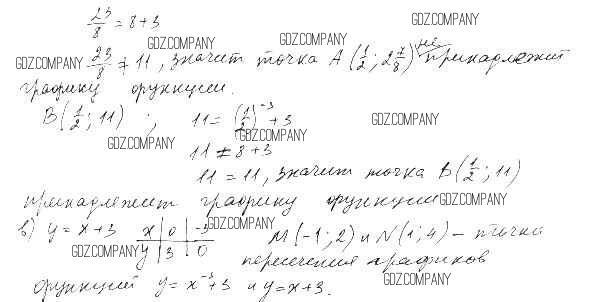 23/8 = 8 + 3
GDZ.COMPANY
GDZ.COMPANY
GDZ.COMPANY
GDZ.COMPANY 23/8 ≠ 11, значит точка A (1/2; 2 7/8) не принадлежит
GDZ.COMPANY
графику функции.
B(1/2; 11) ; 11 = (1/2)^-3 + 3
GDZ.COMPANY
GDZ.COMPANY
GDZ.COMPANY
11 ≠ 8 + 3
11 = 11, значит точка B(1/2; 11)
принадлежит графику функции GDZ.COMPANY
в) y = x + 3 x | 0 | -3 GDZ.COMPANY M(-1; 2) и N(1; 4) – точки
y | 3 | 0
GDZ.COMPANY пересечения графиков
GDZ.COMPANY
функций y = x^-3 + 3 и y = x + 3.